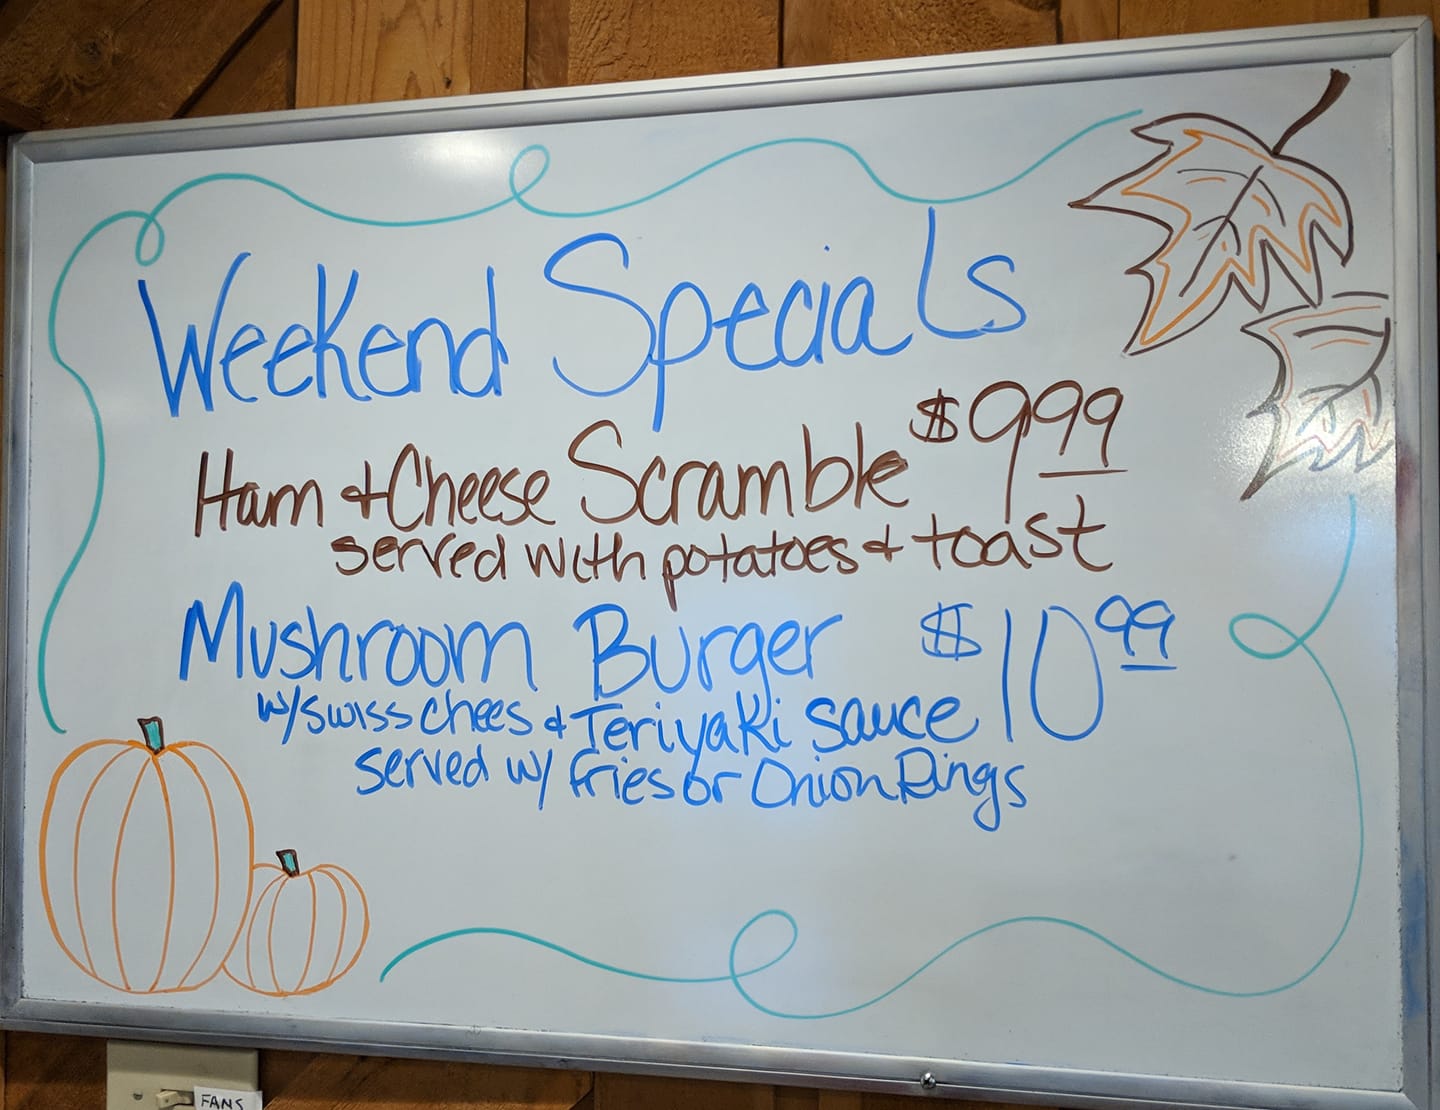 Weekend Specials
Ham + Cheese Scramble $9.99
served with potatoes + toast
Mushroom Burger $10.99
w/swiss chees + Teriyaki sauce
served w/ fries or Onion Rings
FANS